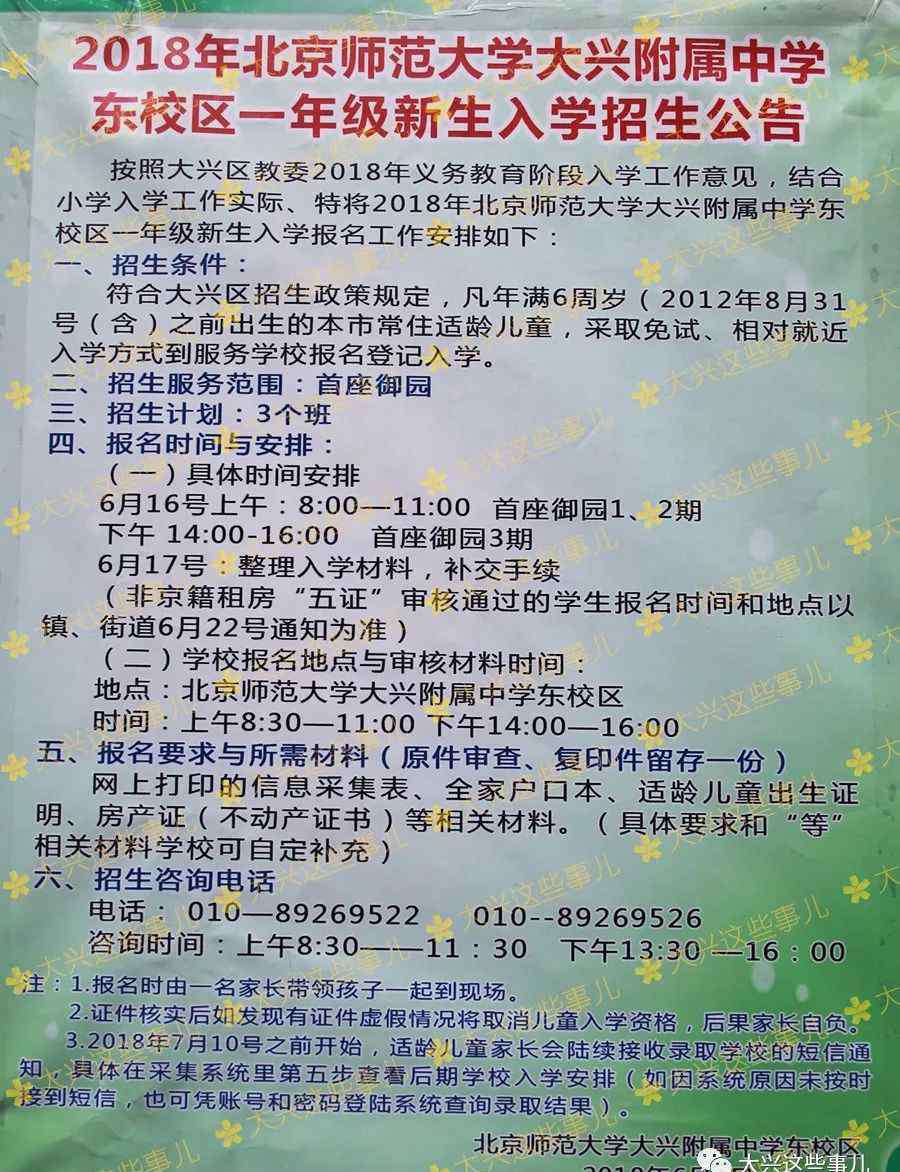 2018年北京师范大学大兴附属中学
东校区一年级新生入学招生公告
按照大兴区教委2018年义务教育阶段入学工作意见，结合
小学入学工作实际、特将2018年北京师范大学大兴附属中学东
校区一年级新生入学报名工作安排如下：
一、招生条件：
符合大兴区招生政策规定，凡年满6周岁（2012年8月31
号（含）之前出生的本市常住适龄儿童，采取免试、相对就近
入学方式到服务学校报名登记入学。
二、招生服务范围：首座御园
三、招生计划：3个班
四、报名时间与安排：
（一）具体时间安排
6月16号上午：8:00—11:00 首座御园1、2期
下午 14:00-16:00 首座御园3期
6月17号：整理入学材料，补交手续
（非京籍租房“五证”审核通过的学生报名时间和地点以
镇、街道6月22号通知为准）
（二）学校报名地点与审核材料时间：
地点：北京师范大学大兴附属中学东校区
时间：上午8:30—11:00 下午14:00—16:00
五、报名要求与所需材料（原件审查、复印件留存一份）
网上打印的信息采集表、全家户口本、适龄儿童出生证
明、房产证（不动产证书）等相关材料。（具体要求和“等”
相关材料学校可自定补充）
六、招生咨询电话
电话： 010—89269522 010--89269526
咨询时间：上午8:30——11：30 下午13:30 —16：00
注：1.报名时由一名家长带领孩子一起到现场。
2.证件核实后如发现有证件虚假情况将取消儿童入学资格，后果家长自负。
3.2018年7月10号之前开始，适龄儿童家长会陆续接收录取学校的短信通
知，具体在采集系统里第五步查看后期学校入学安排（如因系统原因未按时
接到短信，也可凭账号和密码登陆系统查询录取结果）。
北京师范大学大兴附属中学东校区
大兴这些事儿